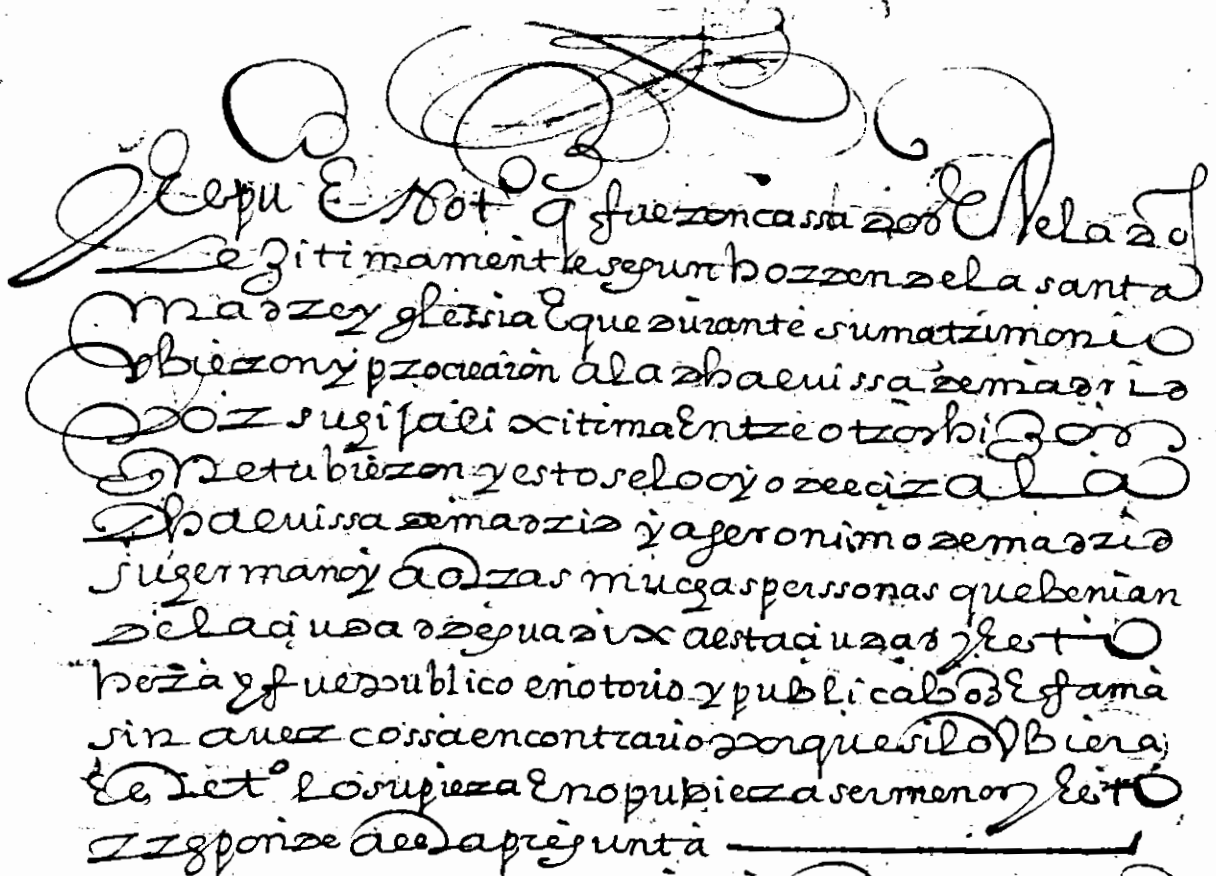 E es pu E not° q fueron cassados E Velados
Legitimamente segun horden de la santa
madre yglessia E que durante su matrimonio
obieron y procrearon a la dha luissa de madrid
por su gija lixitima Entre otros hixos
que tubieron y esto se lo oyo decir a la
dha luissa de madrid y a geronimo de madrid
su germano y a otras muchas perssonas que benian
de la ciudad de guadix a esta ciudad y esto
hera y fue publico e notorio y publica boz E fama
sin auer cossa en contrario porque si lo Vbiera
Este t° lo supiera E no pudiera ser menos y esto
rresponde a la pregunta